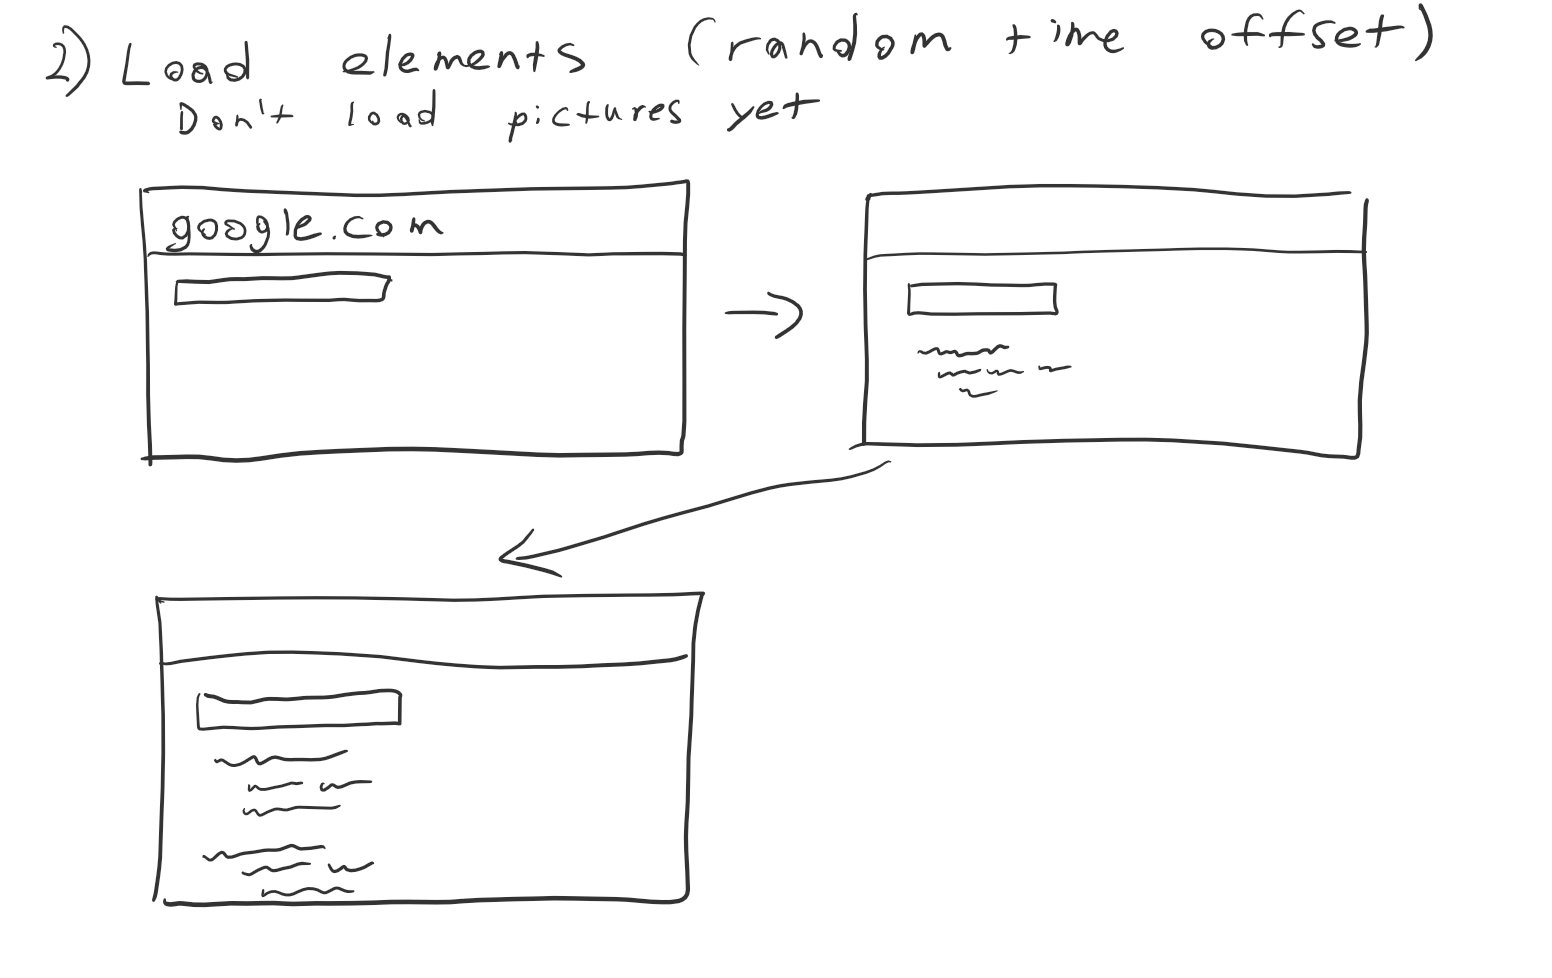 2) Load elements (random time offset)
Don't load pictures yet
google.com